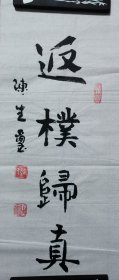 返樸歸真
陳生墨